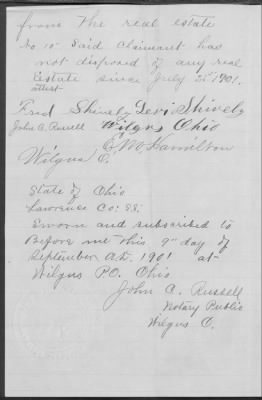 from The real estate
No 10 Said Claimant has
not disposed of any real
Estate since July 25" 1901.
attest
Fred Shively Levi Shively
John C. Russell Wilgus Ohio
E. M. Hamilton
Wilgus O.
State of Ohio
Lawrence Co: SS:
Sworn and subscribed to
Before me this 9" day of
September A.D. 1901 at
Wilgus P.O. Ohio
John C. Russell
Notary Public
Wilgus O.